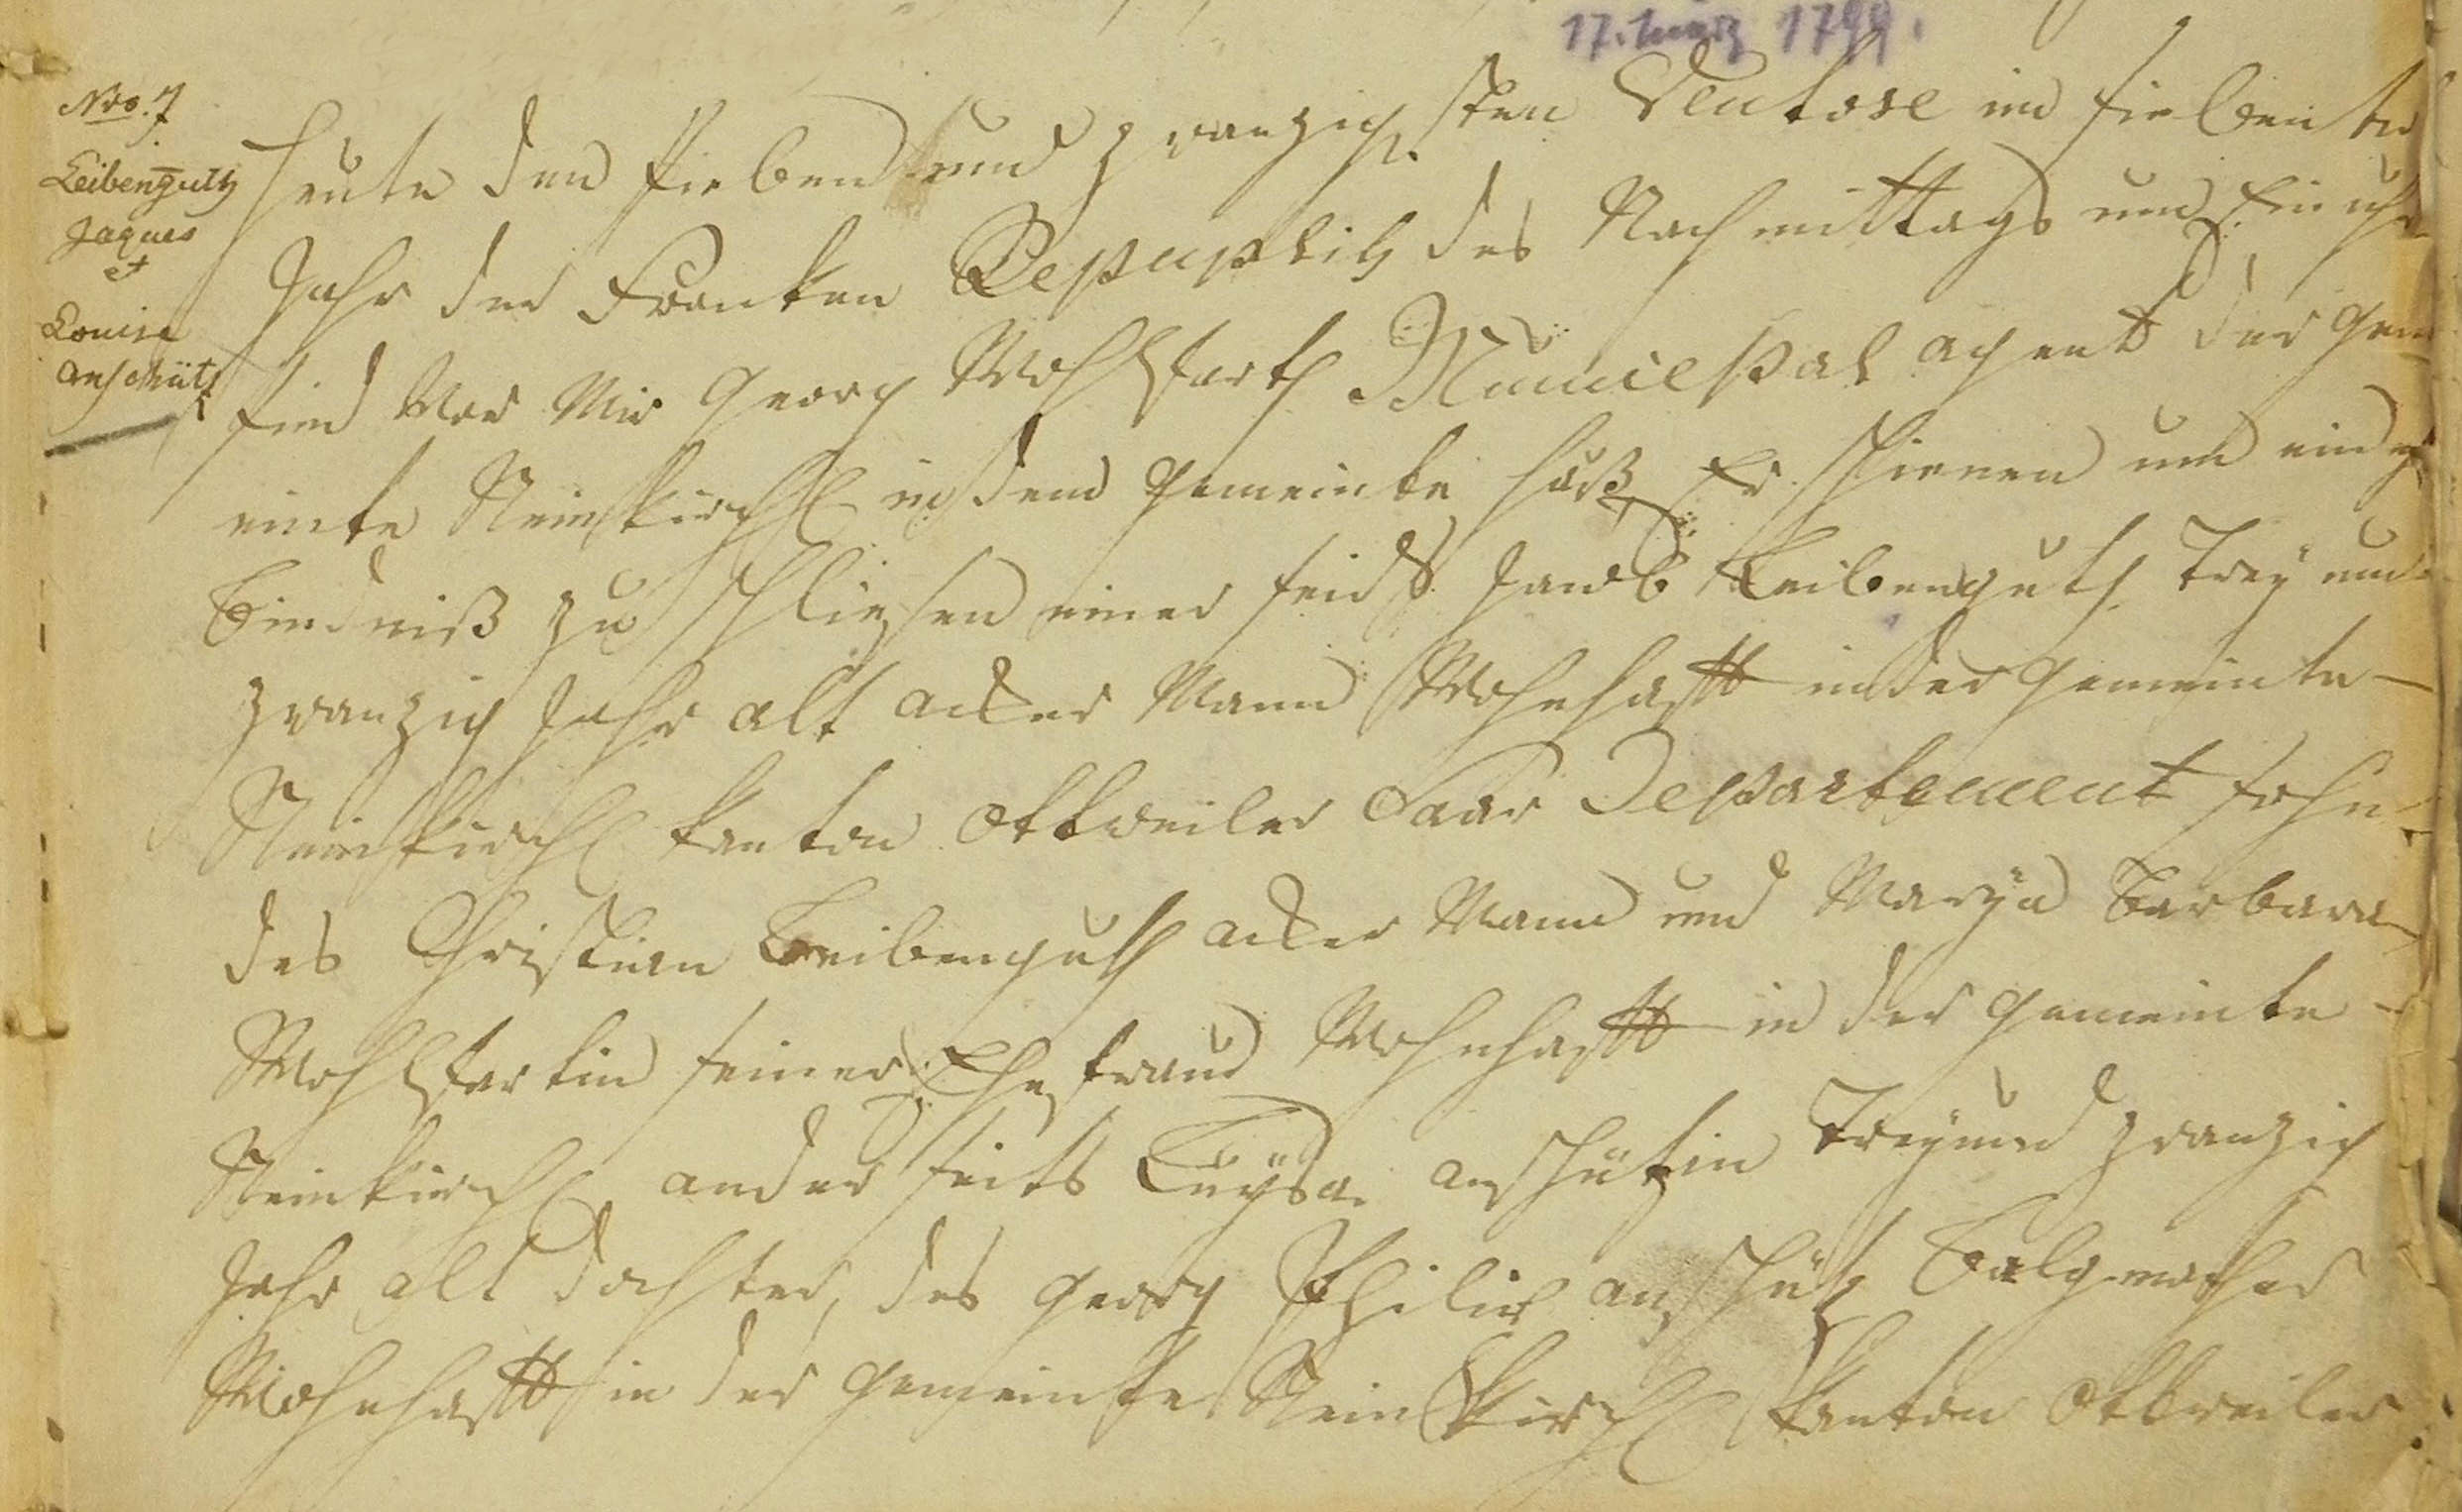 17. März 1799.
Nro. 7
Leibenguth
Jaques
et
Louise
Anschütz
Heute den sieben und zwanzigsten Ventose im siebente
Jahr der Franken Repuplik des Nachmittags um Ein uhr
sind Vor Mir Georg Wohlfarth Municipal agent der gem
einte Neinkirch in dem gemeinte hauß Er schienen um ein
Bindniß zu schliessen einer seids Jacob Leibenguth Trey und
zwanzig Jahr alt acker Mann Wohnhafft in der gemeinte -
Neinkirch Canton Ottweiler Saar Departement sohn
des Christian Leibenguth acker Mann und Marya Barbara
Wohlfartin seiner Ehe frau Wohnhafft in der gemeinte -
Neinkirch ander seits Luysa anschützin Trey und zwanzig
Jahr alt dochter, des georg Philip anschütz Balgmacher
Wohnhafft in der gemeinte Neinkirch Canton Ottweiler